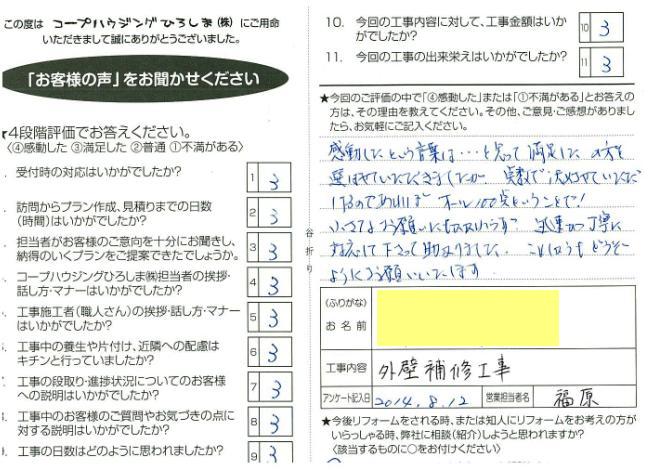 この度は コープハウジングひろしま(株) にご用命
いただきまして誠にありがとうございました。
「お客様の声」をお聞かせください
4段階評価でお答えください。
〈④感動した ③満足した ②普通 ①不満がある〉
受付時の対応はいかがでしたか? 1 3
訪問からプラン作成、見積りまでの日数
(時間)はいかがでしたか? 2 3
担当者がお客様のご意向を十分にお聞きし、
納得のいくプランをご提案できたでしょうか。 3 3
コープハウジングひろしま㈱担当者の挨拶・
話し方・マナーはいかがでしたか? 4 3
工事施工者(職人さん)の挨拶・話し方・マナー
はいかがでしたか? 5 3
工事中の養生や片付け、近隣への配慮は
キチンと行っていましたか? 6 3
工事の段取り・進捗状況についてのお客様
への説明はいかがでしたか? 7 3
工事中のお客様のご質問やお気づきの点に
対する説明はいかがでしたか? 8 3
工事の日数はどのように思われましたか? 9 3
谷折り
10. 今回の工事内容に対して、工事金額はいか
がでしたか? 10 3
11. 今回の工事の出来栄えはいかがでしたか? 11 3
★今回のご評価の中で「④感動した」または「①不満がある」とお答えの
方は、その理由を教えてください。その他、ご意見・ご感想がありまし
たら、お気軽にご記入ください。
感動したという言葉は…と思って満足した の方を
選ばせていただきましたが 点数で決めさせていただ
けるのであれば オール100点ということで!
小さなお願いにも 迅速かつ丁寧に
対応して下さって助かりました。 これからもどうぞ
ようにお願いいたします
(ふりがな)
お名前
工事内容 外壁補修工事
アンケート記入日 2014.8.12 営業担当者名 福原
★今後リフォームをされる時、または知人にリフォームをお考えの方が
いらっしゃる時、弊社に相談(紹介)しようと思われますか?
〈該当するものに○をお付けください〉